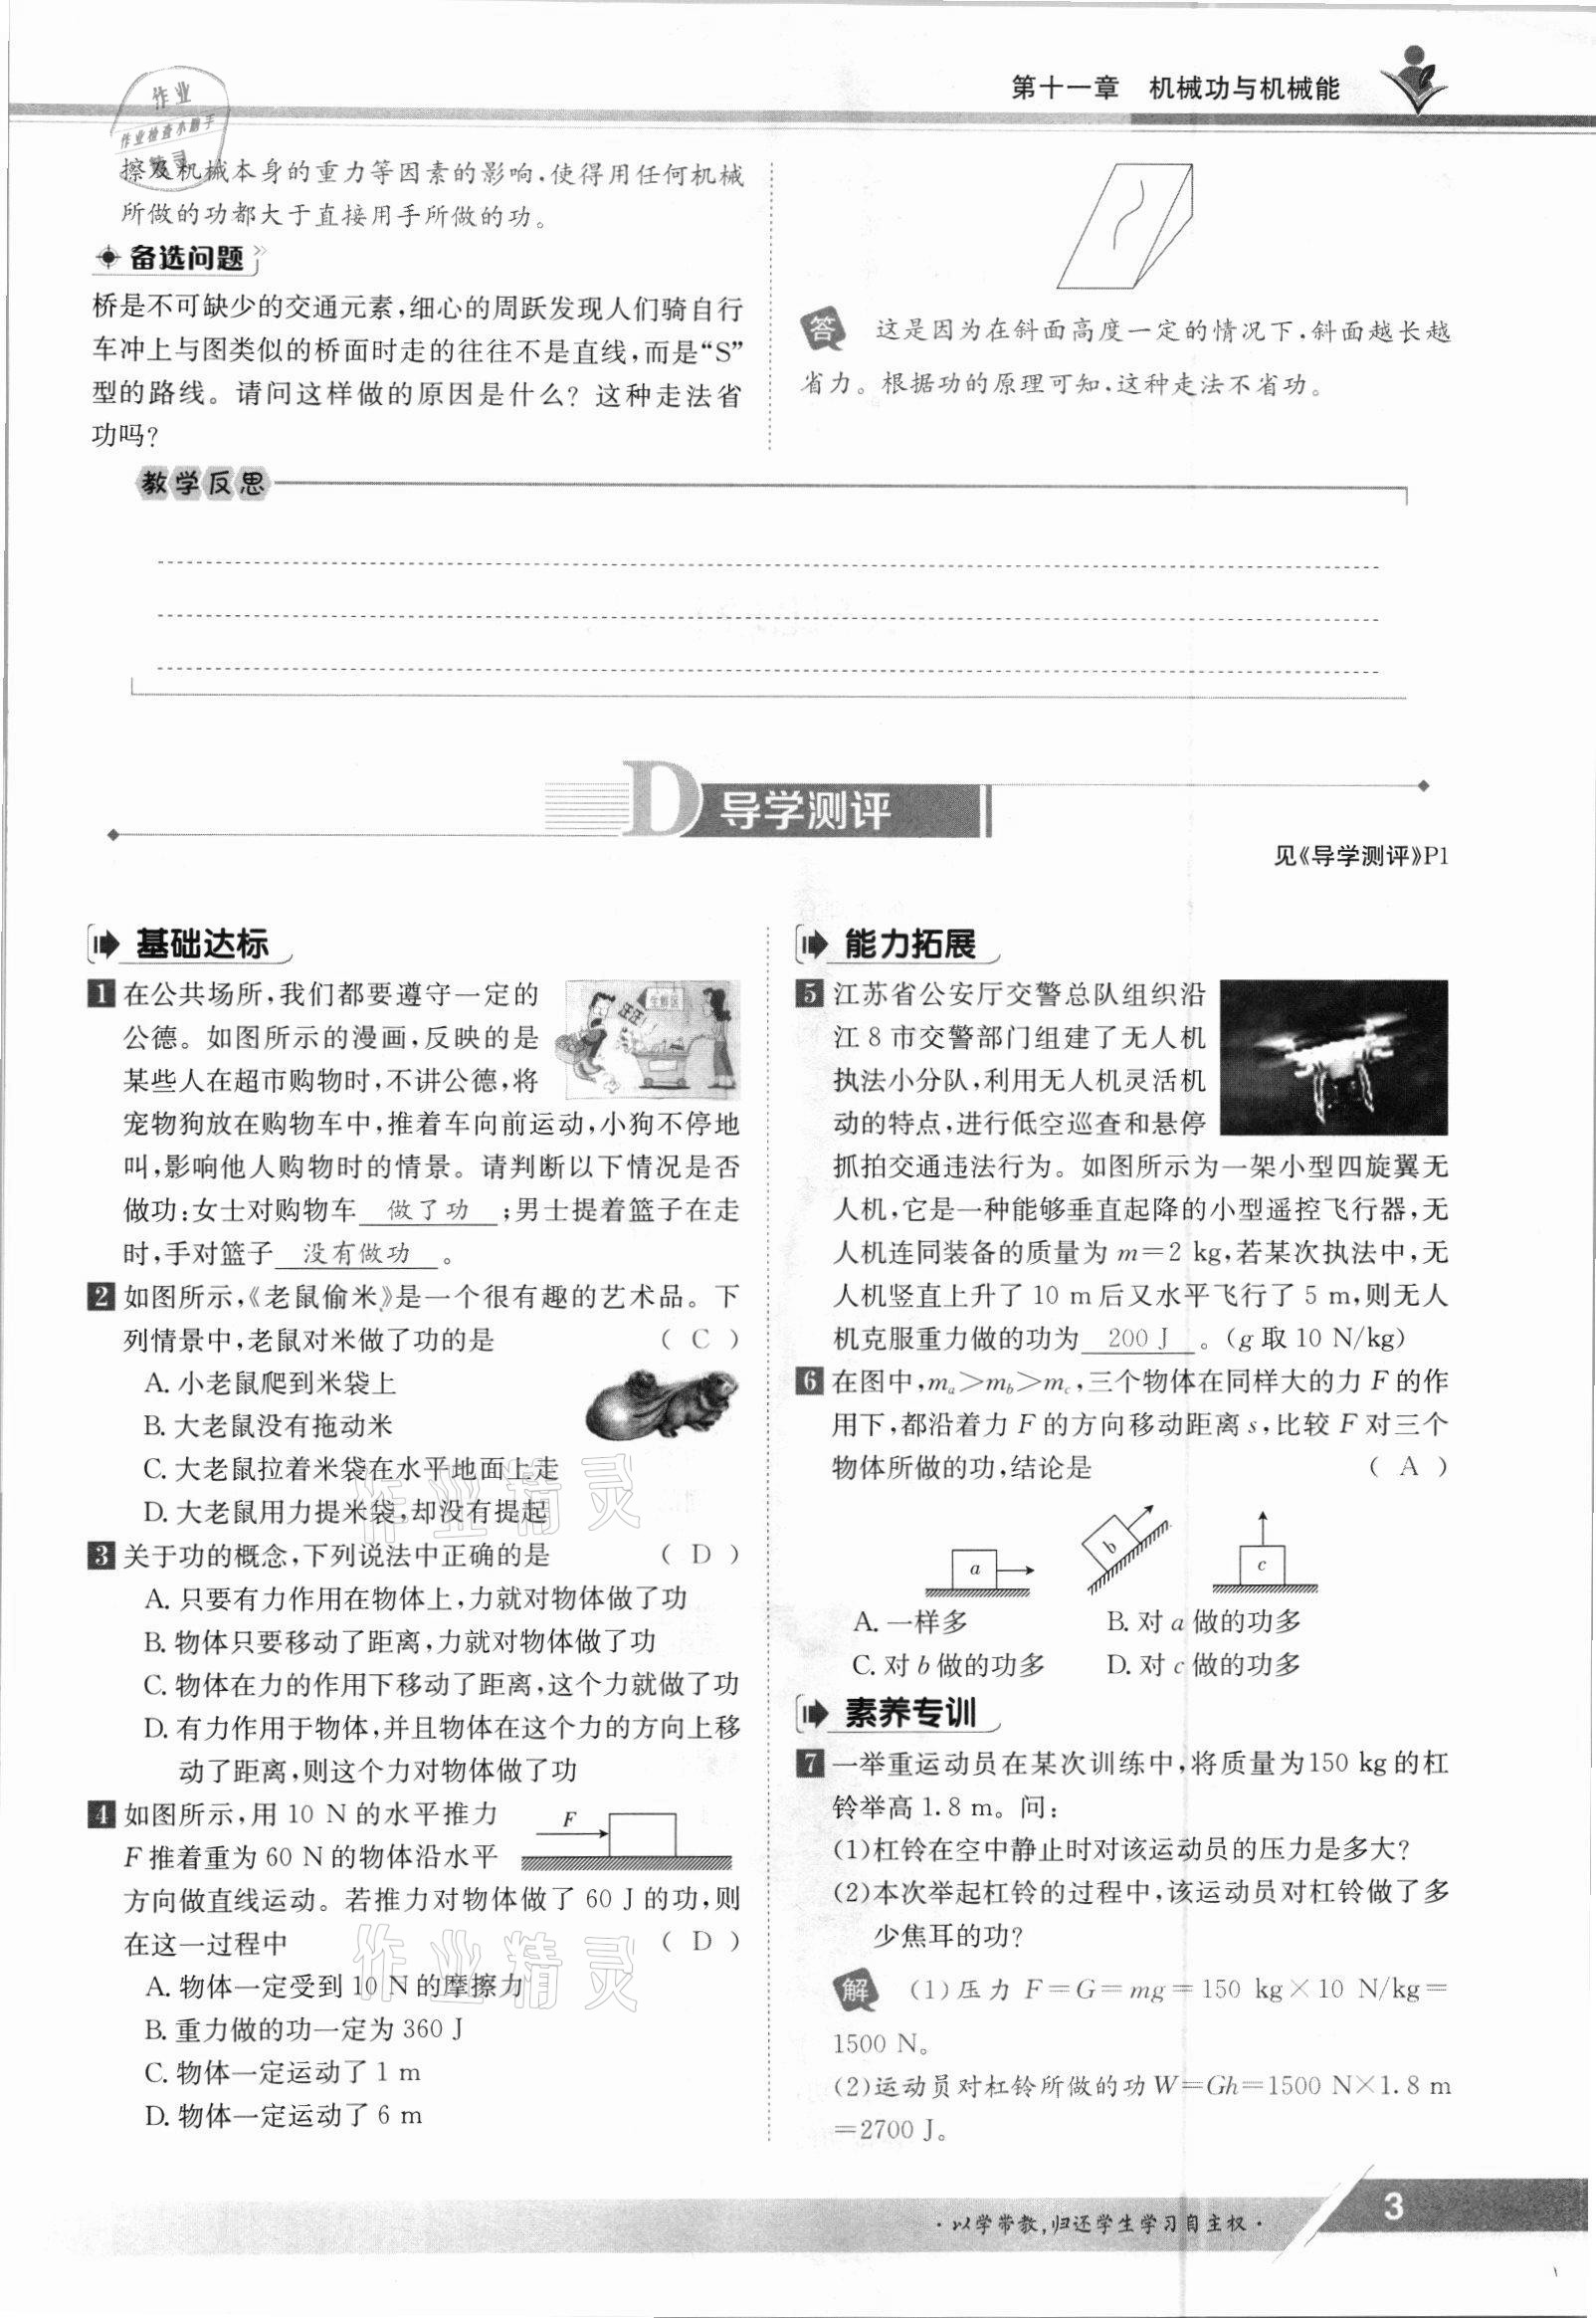 第十一章 机械功与机械能
作业
作业检查小助手
精灵
擦及机械本身的重力等因素的影响,使得用任何机械
所做的功都大于直接用手所做的功。
备选问题
桥是不可缺少的交通元素,细心的周跃发现人们骑自行
车冲上与图类似的桥面时走的往往不是直线,而是“S”
型的路线。请问这样做的原因是什么?这种走法省
功吗?
答 这是因为在斜面高度一定的情况下,斜面越长越
省力。根据功的原理可知,这种走法不省功。
教学反思
D 导学测评
见《导学测评》P1
基础达标
1 在公共场所,我们都要遵守一定的
公德。如图所示的漫画,反映的是
某些人在超市购物时,不讲公德,将
宠物狗放在购物车中,推着车向前运动,小狗不停地
叫,影响他人购物时的情景。请判断以下情况是否
做功:女士对购物车 做了功 ;男士提着篮子在走
时,手对篮子 没有做功 。
汪汪!
生鲜区
2 如图所示,《老鼠偷米》是一个很有趣的艺术品。下
列情景中,老鼠对米做了功的是 ( C )
A. 小老鼠爬到米袋上
B. 大老鼠没有拖动米
C. 大老鼠拉着米袋在水平地面上走
D. 大老鼠用力提米袋,却没有提起
作业精灵
3 关于功的概念,下列说法中正确的是 ( D )
A. 只要有力作用在物体上,力就对物体做了功
B. 物体只要移动了距离,力就对物体做了功
C. 物体在力的作用下移动了距离,这个力就做了功
D. 有力作用于物体,并且物体在这个力的方向上移
动了距离,则这个力对物体做了功
4 如图所示,用 10 N 的水平推力
F 推着重为 60 N 的物体沿水平
方向做直线运动。若推力对物体做了 60 J 的功,则
在这一过程中 ( D )
F
A. 物体一定受到 10 N 的摩擦力
B. 重力做的功一定为 360 J
C. 物体一定运动了 1 m
D. 物体一定运动了 6 m
作业精灵
能力拓展
5 江苏省公安厅交警总队组织沿
江 8 市交警部门组建了无人机
执法小分队,利用无人机灵活机
动的特点,进行低空巡查和悬停
抓拍交通违法行为。如图所示为一架小型四旋翼无
人机,它是一种能够垂直起降的小型遥控飞行器,无
人机连同装备的质量为 m=2 kg,若某次执法中,无
人机竖直上升了 10 m 后又水平飞行了 5 m,则无人
机克服重力做的功为 200 J 。(g 取 10 N/kg)
6 在图中,mₐ>m_b>m_c,三个物体在同样大的力 F 的作
用下,都沿着力 F 的方向移动距离 s,比较 F 对三个
物体所做的功,结论是 ( A )
a b c
A. 一样多 B. 对 a 做的功多
C. 对 b 做的功多 D. 对 c 做的功多
素养专训
7 一举重运动员在某次训练中,将质量为150 kg 的杠
铃举高 1.8 m。问:
(1)杠铃在空中静止时对该运动员的压力是多大?
(2)本次举起杠铃的过程中,该运动员对杠铃做了多
少焦耳的功?
解 (1)压力 F=G=mg=150 kg×10 N/kg=
1500 N。
(2)运动员对杠铃所做的功 W=Gh=1500 N×1.8 m
=2700 J。
·以学带教,归还学生学习自主权·
3